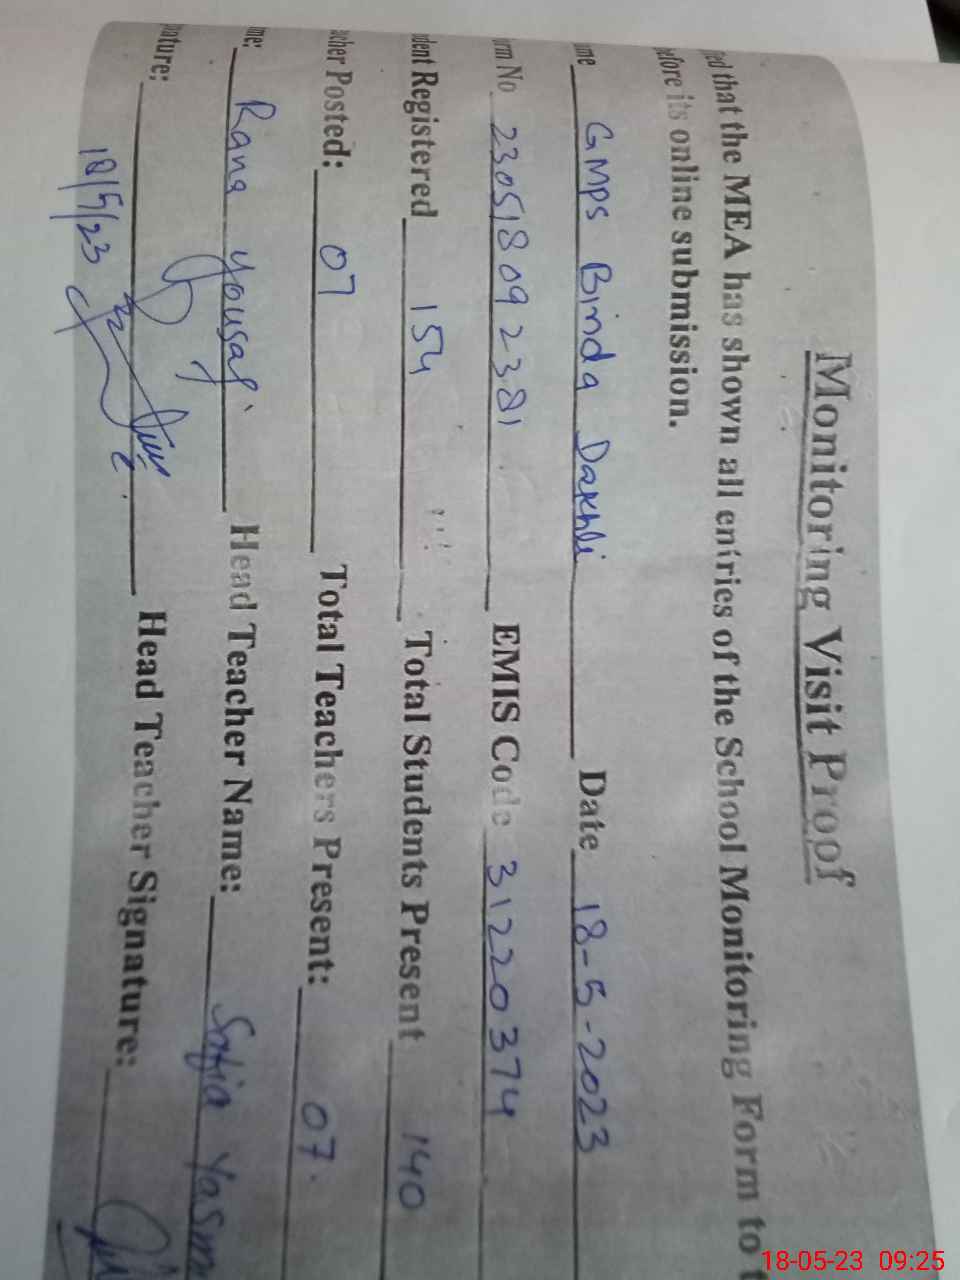 Monitoring Visit Proof
fied that the MEA has shown all entries of the School Monitoring Form to t
efore its online submission.
me GMPS Binda Dakhli Date 18-5-2023
orm No 230518092381 EMIS Code 31220374
dent Registered 154 Total Students Present 140
cher Posted: 07 Total Teachers Present: 07.
me: Rana Yousaf Head Teacher Name: Safia Yasm
nature: Head Teacher Signature:
18/5/23
18-05-23 09:25